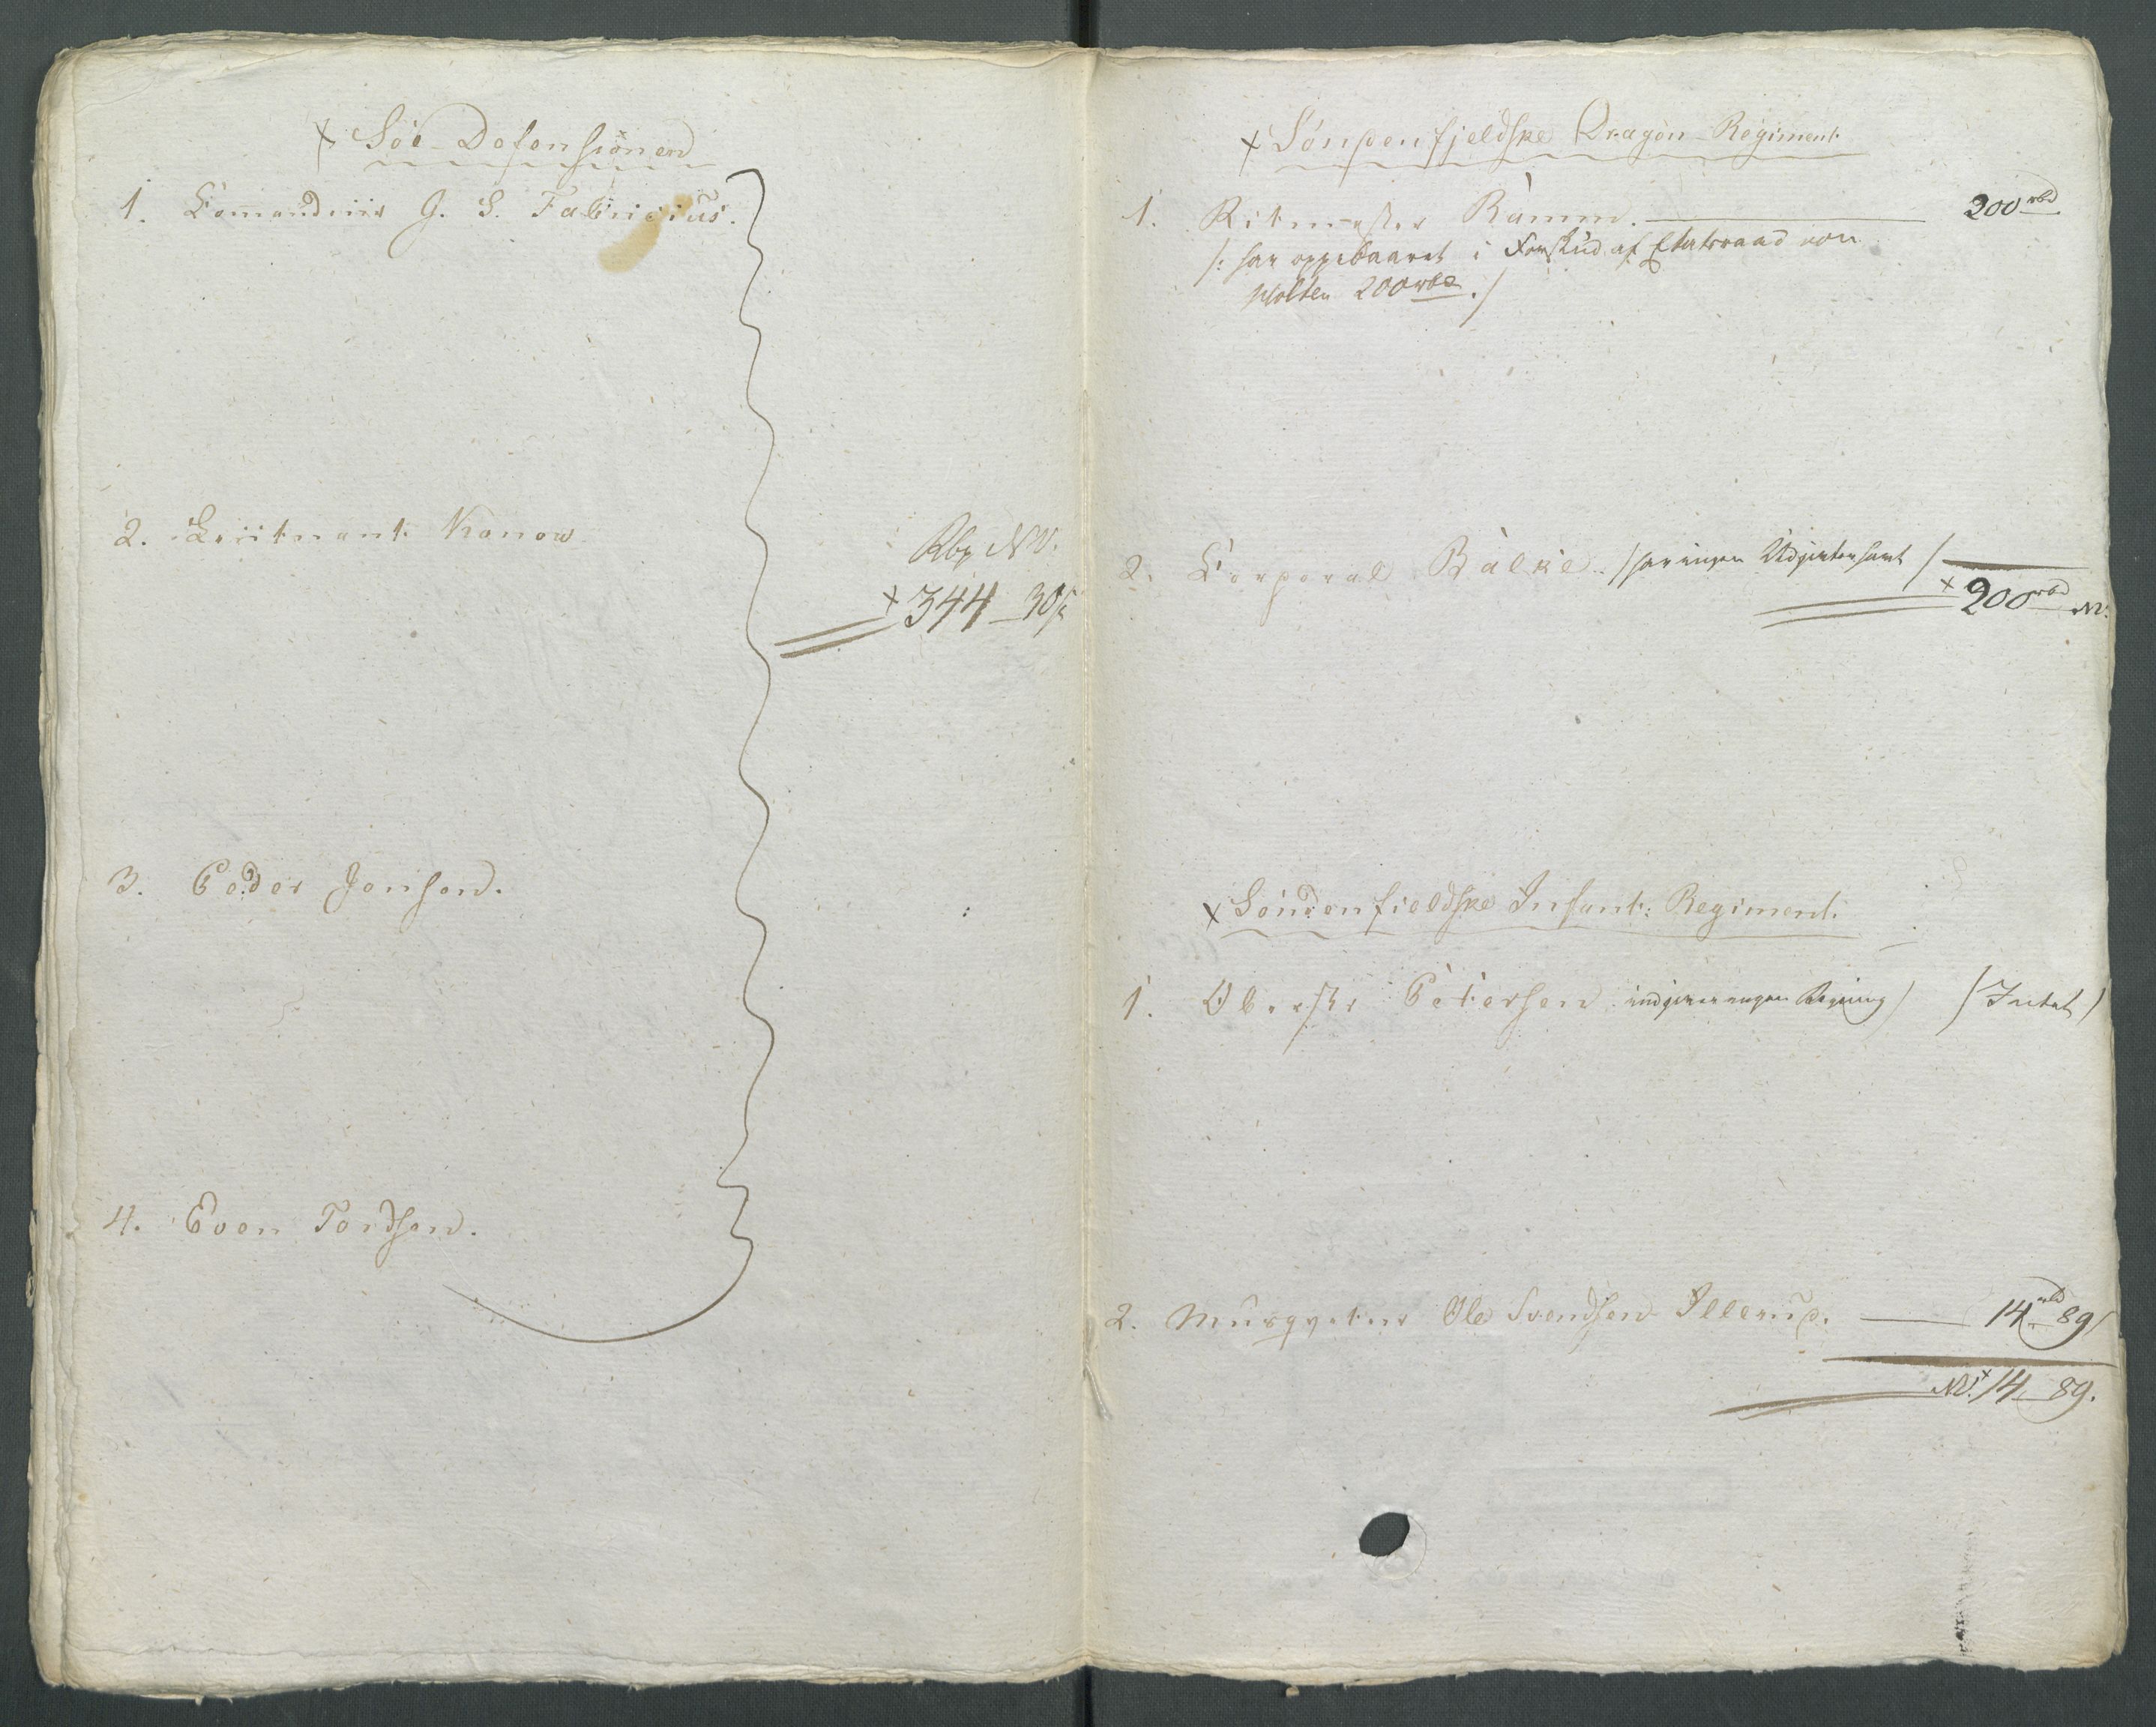 + Søe-Defensionen
1. Comandeur J. S. Fabricius.
2. Leutnant Konow
Rbp NV.
+ 344 - 30 s
3. Peder Jensen.
4. Even Tordsen.
+ Søndenfjeldske Dragon-Regiment
1. Ritmester Ramm. 200 rbd
/: har oppebaaret i Forskud af Etatsraad von
Holten 200 rbd. /
2. Corporal Balke. / har ingen Udgivter havt /
+ 200 rbd NV.
+ Søndenfieldske Infant: Regiment.
1. Oberste Petersen indgiver ingen Regning) / Intet /
2. Musqveteer Ole Svendsen Illerud. 14 rbd 89
NV. + 14 - 89.